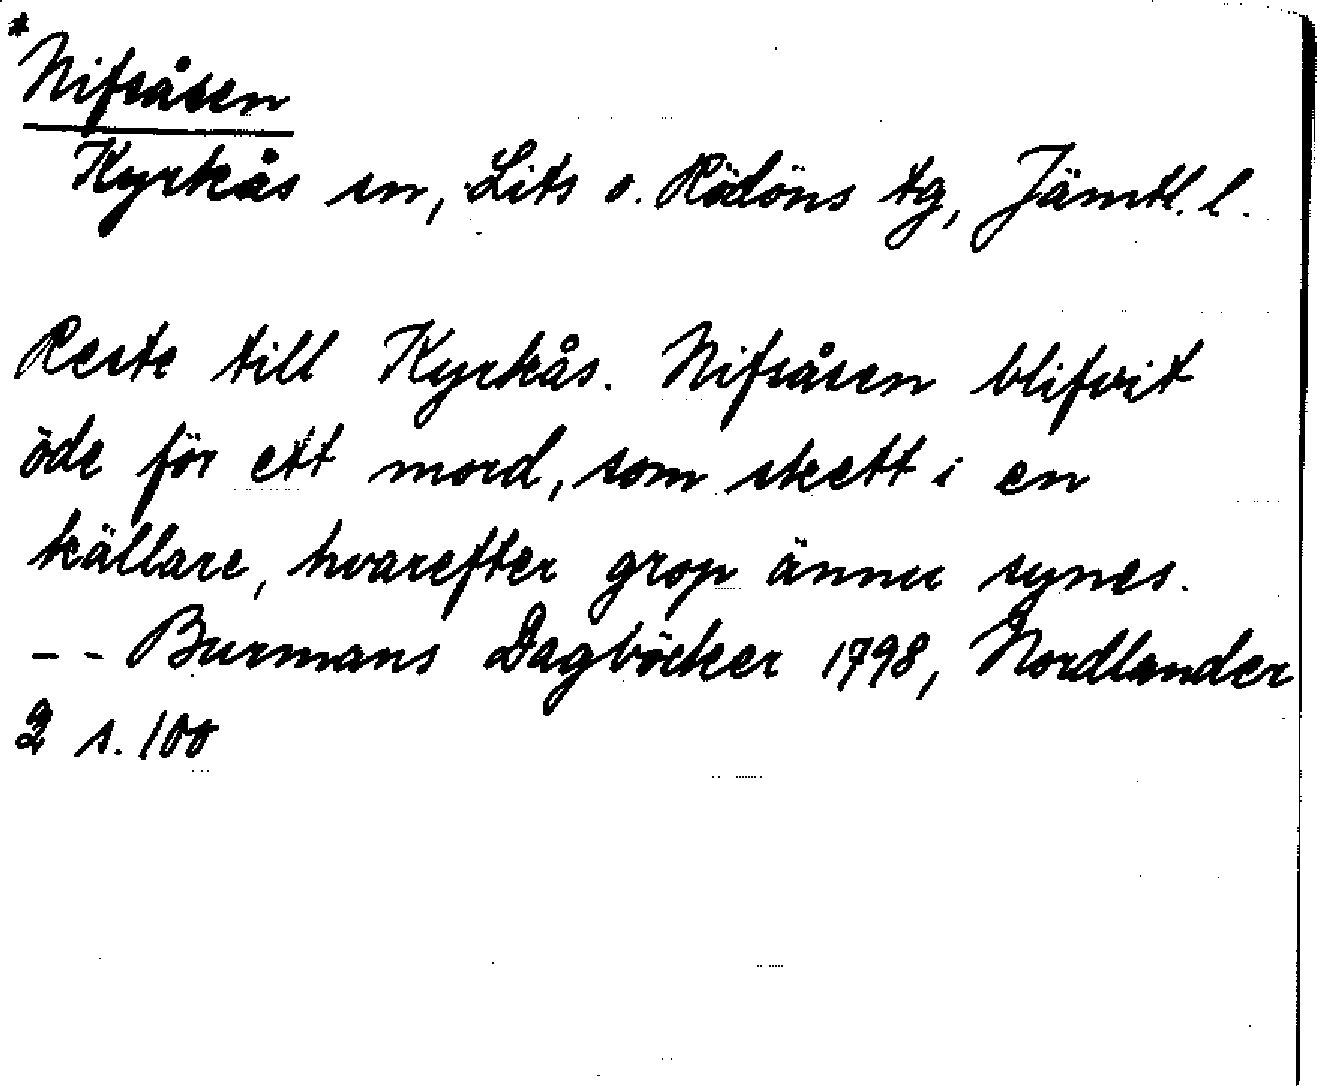 *
Nifsåsen
Kyrkås sn, Lits o. Rödöns tg, Jämtl. l.
Reste till Kyrkås. Nifsåsen blifvit
öde för ett mord, som skett i en
källare, hvarefter grop ännu synes.
-- Burmans Dagböcker 1798, Nordlander
2 s. 100